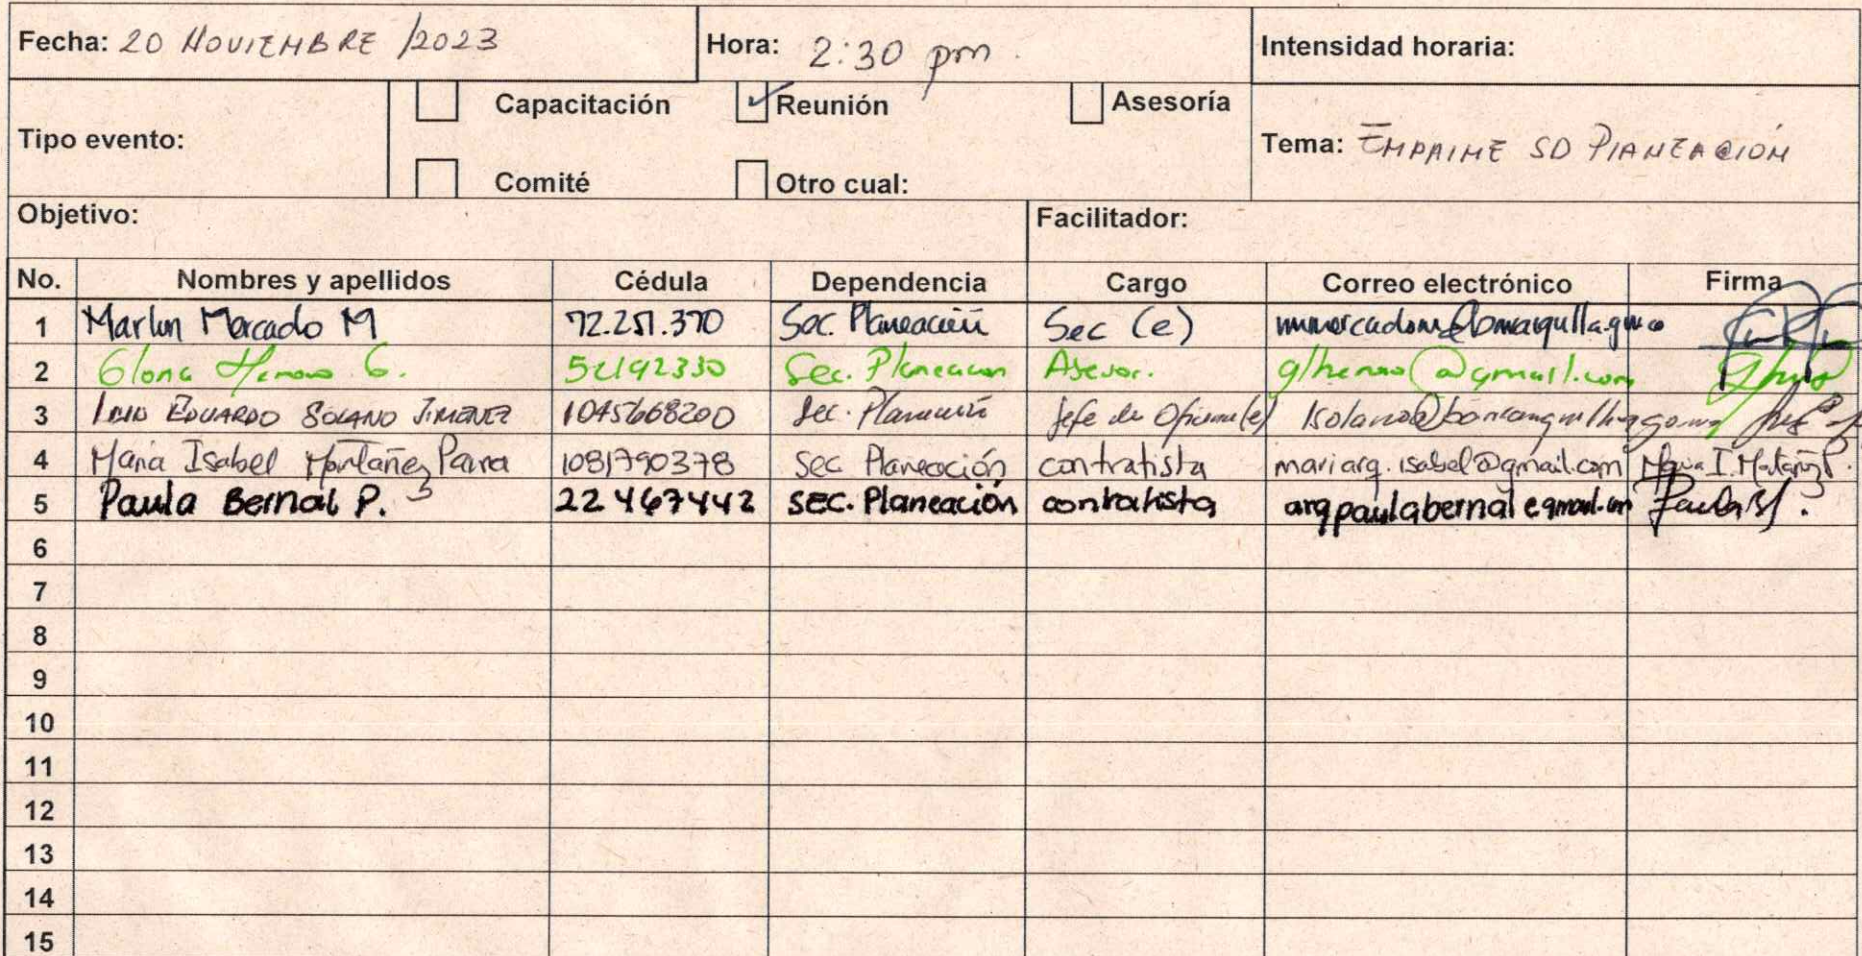 Fecha: 20 NOVIEMBRE /2023 Hora: 2:30 pm. Intensidad horaria:
Tipo evento: Capacitación Reunión Asesoría
Comité Otro cual: Tema: EMPALME SD PLANEACIÓN
Objetivo: Facilitador:
No. Nombres y apellidos Cédula Dependencia Cargo Correo electrónico Firma
1 Marlon Mercado M 72.251.370 Sec. Planeación Sec (e)
2 Gloria Henao G. 52192330 Sec. Planeacion Asesor. glhenao@gmail.com
3 EDUARDO SOLANO JIMENEZ 1045668200 Sec. Planeación Jefe de Oficina (e)
4 Maria Isabel Montañez Parra 1081790378 Sec Planeación contratista mariarq.isabel@gmail.com Maria I. Montañez P.
5 Paula Bernal P. 22467442 SEC. Planeación contratista arqpaulabernal@gmail.com Paula B.
6
7
8
9
10
11
12
13
14
15